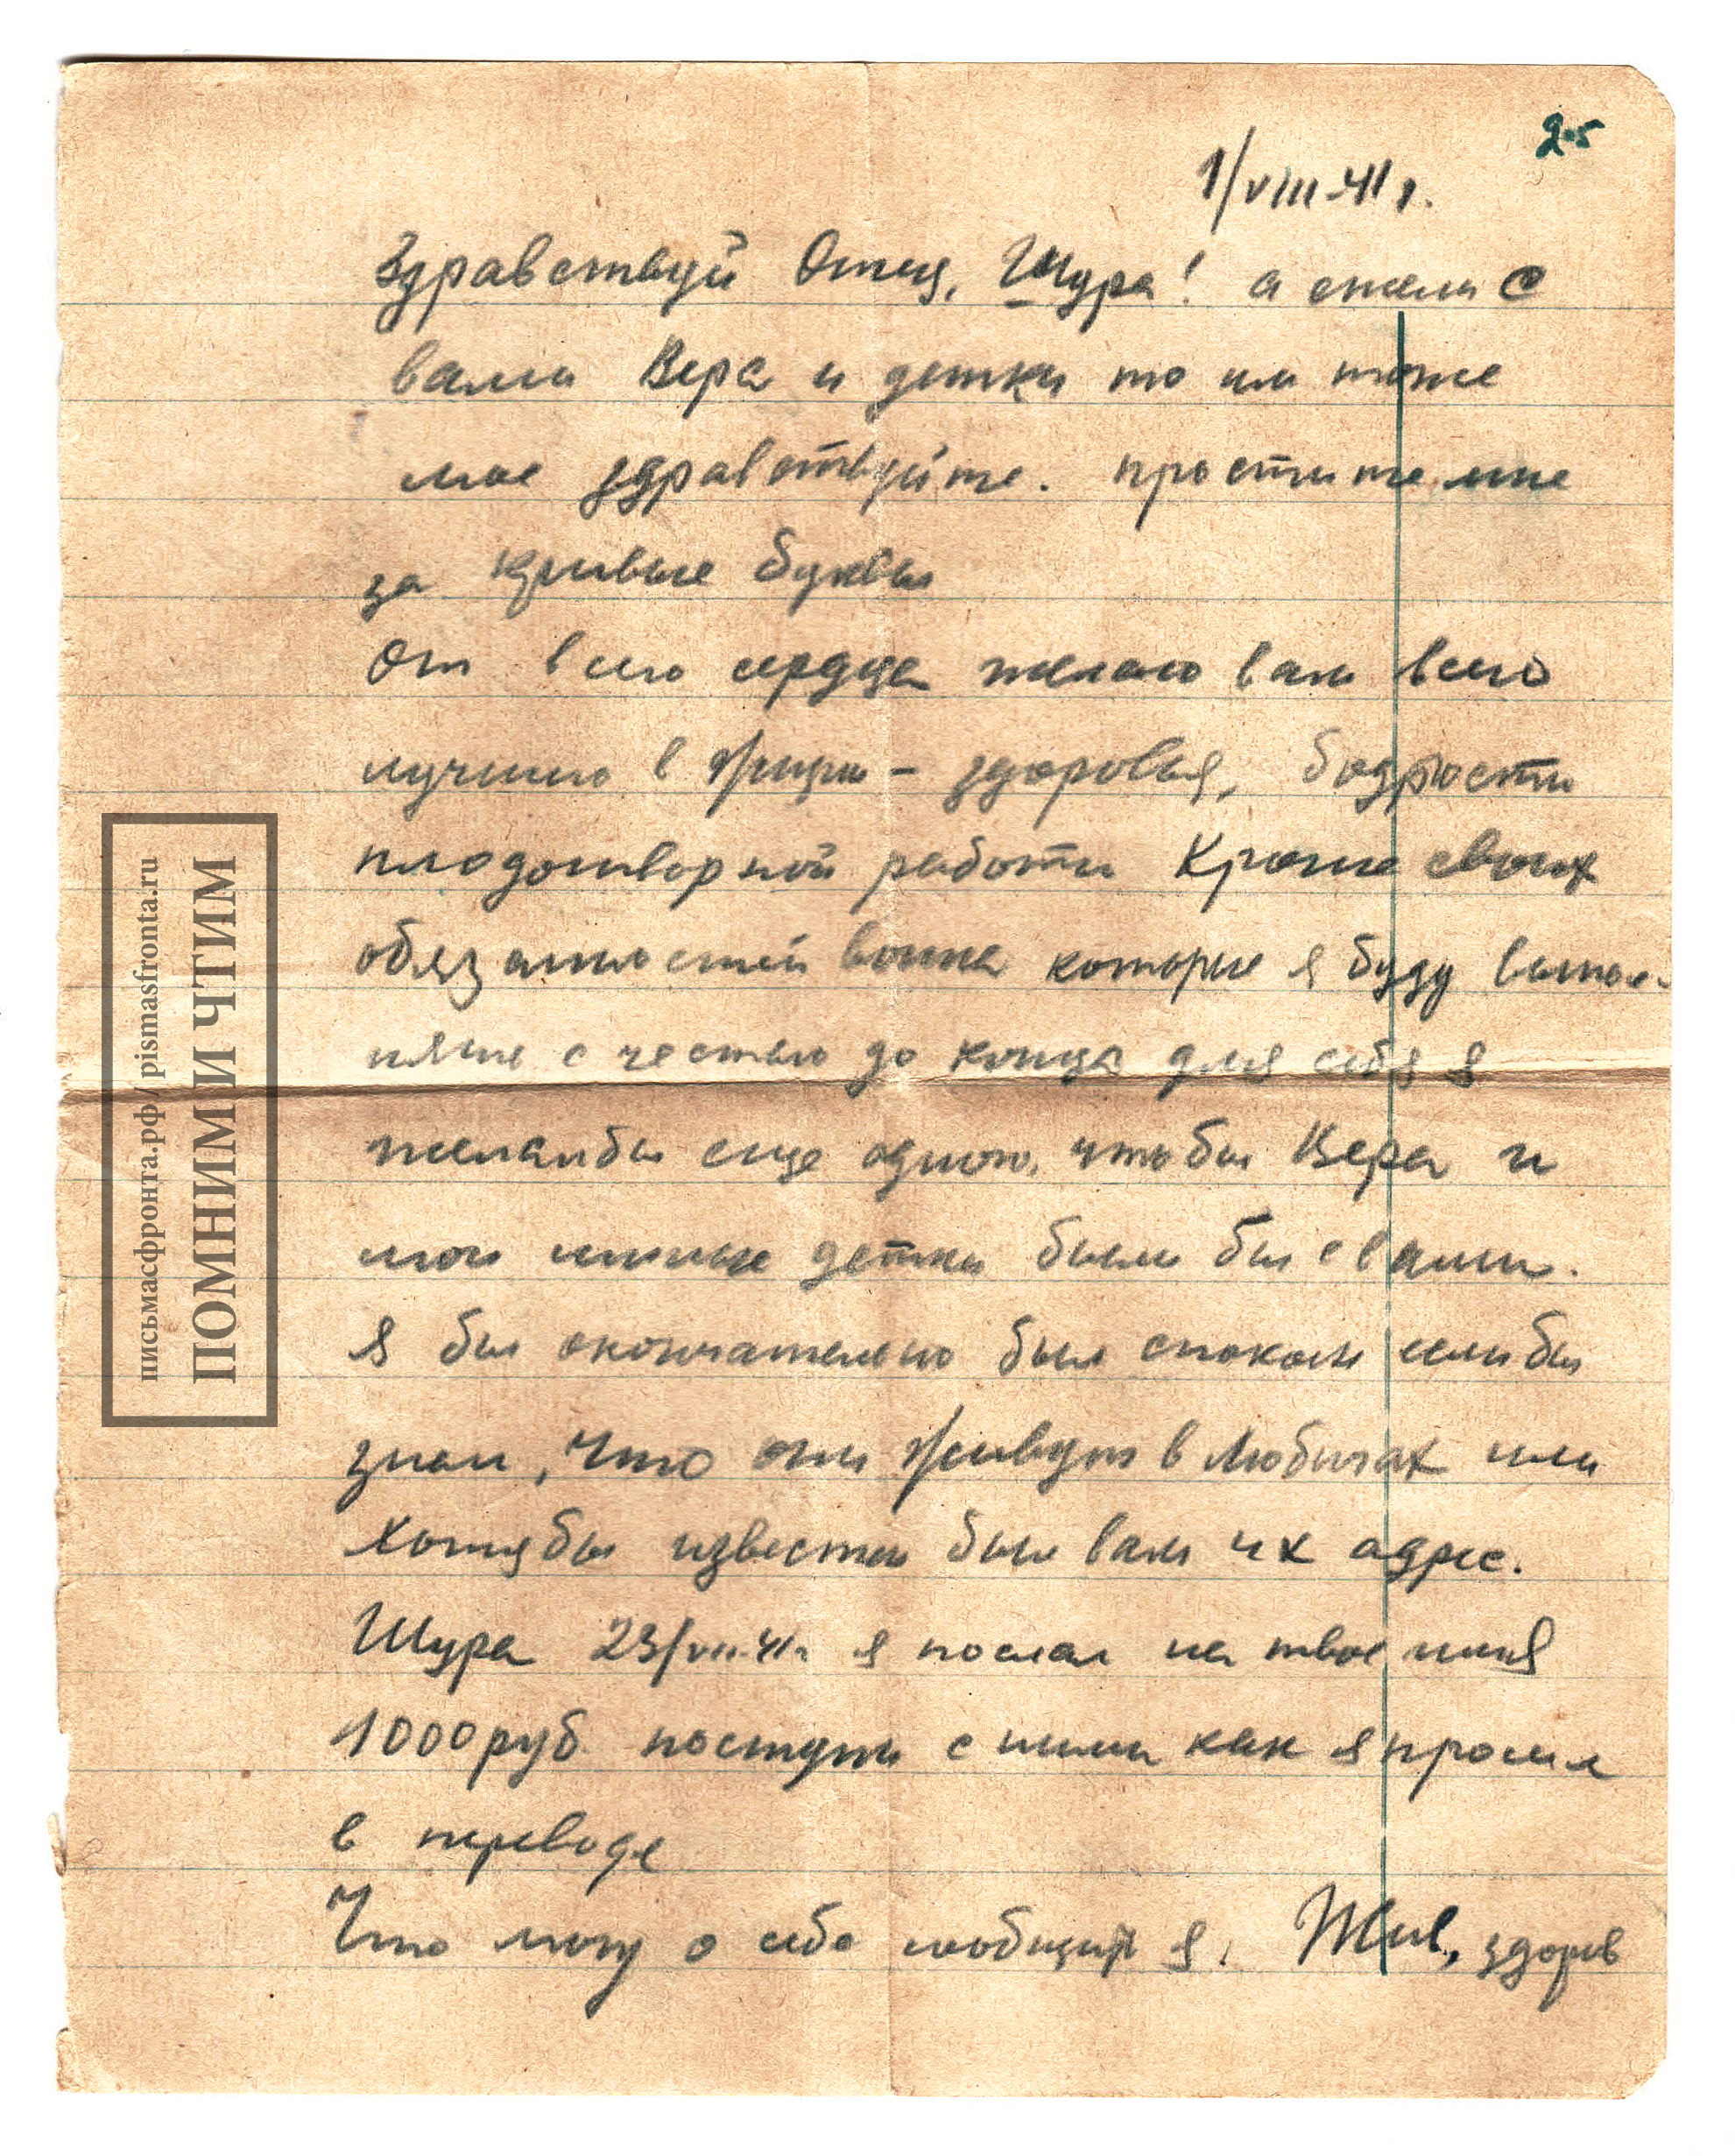 2-5
1/VIII-41 г.
Здравствуй Отец, Шура! а если с
вами Вера и детки то им тоже
мое здравствуйте. простите мне
за кривые буквы
От всего сердца желаю вам всего
лучшего в жизни – здоровья, бодрости
плодотворной работы Кроме своих
обязанностей воина которые я буду выпол-
нять с честью до конца для себя я
желал бы еще одного, чтобы Вера и
мои милые детки были бы с вами.
Я бы окончательно был спокоен если бы
знал, что они живут в Любичах или
хотя бы известен был вам их адрес.
Шура 23/VII-41г я послал на твое имя
1000 руб. поступи с ними как я просил
в переводе
Что могу о себе сообщить я. Жив, здоров
письмасфронта.рф/ pismasfronta.ru
ПОМНИМ И ЧТИМ